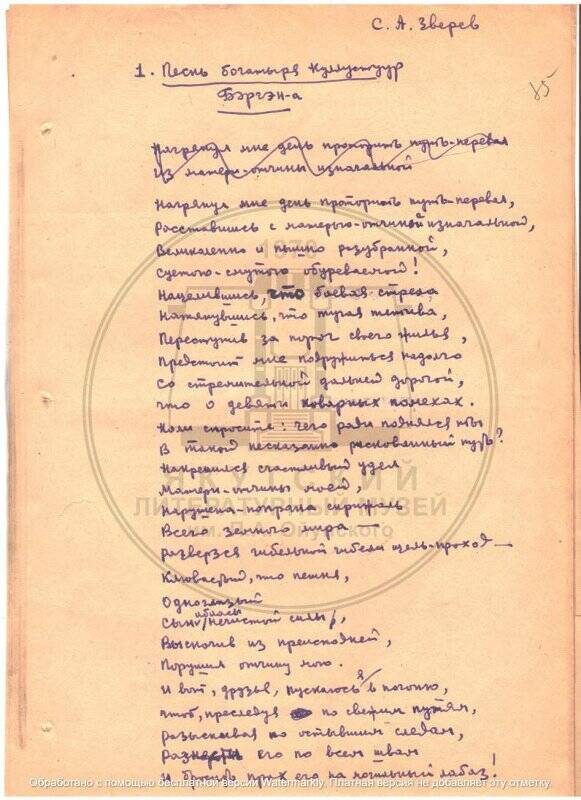 С. А. Зверев
85
1. Песнь богатыря Куллустуур
Бэргэн-а
Нагрянул мне день проторить путь-перевал
Из матери-отчины изначальной
Нагрянул мне день проторить путь-перевал,
Расставшись с матерью-отчиной изначальной,
Великолепно и пышно разубранной,
Суетою-смутою обуреваемой!
Нацелившись, что боевая стрела
Натянувшись, что тугая тетива,
Переступив за порог своего жилья,
Предстоит мне подружиться надолго
Со стремительной дальней дорогой,
что о девяти коварных помехах.
Коли спросите: чего ради поднялся ты
В такой несказанно рискованный путь?
Накренился счастливый удел
Матери-отчины моей,
Нарушена-попрана скрижаль
Всего земного мира —
Разверзся гибельной гибели щель-проход —
Клювастый, что пешня,
Одноглазый
Сын абаасы /нечистой силы/,
Выскочив из преисподней,
Порушил отчину мою.
И вот, друзья, пускаюсь я в погоню,
чтоб, преследуя по свежим путям,
разыскивая по остывшим следам,
Разнести его по всем швам
И бросить прах его на могильный лабаз!
1970
ЯКУТСКИЙ
ЛИТЕРАТУРНЫЙ МУЗЕЙ
им. П.А. Ойунского
Обработано с помощью бесплатной версии Watermarkly. Платная версия не добавляет эту отметку.